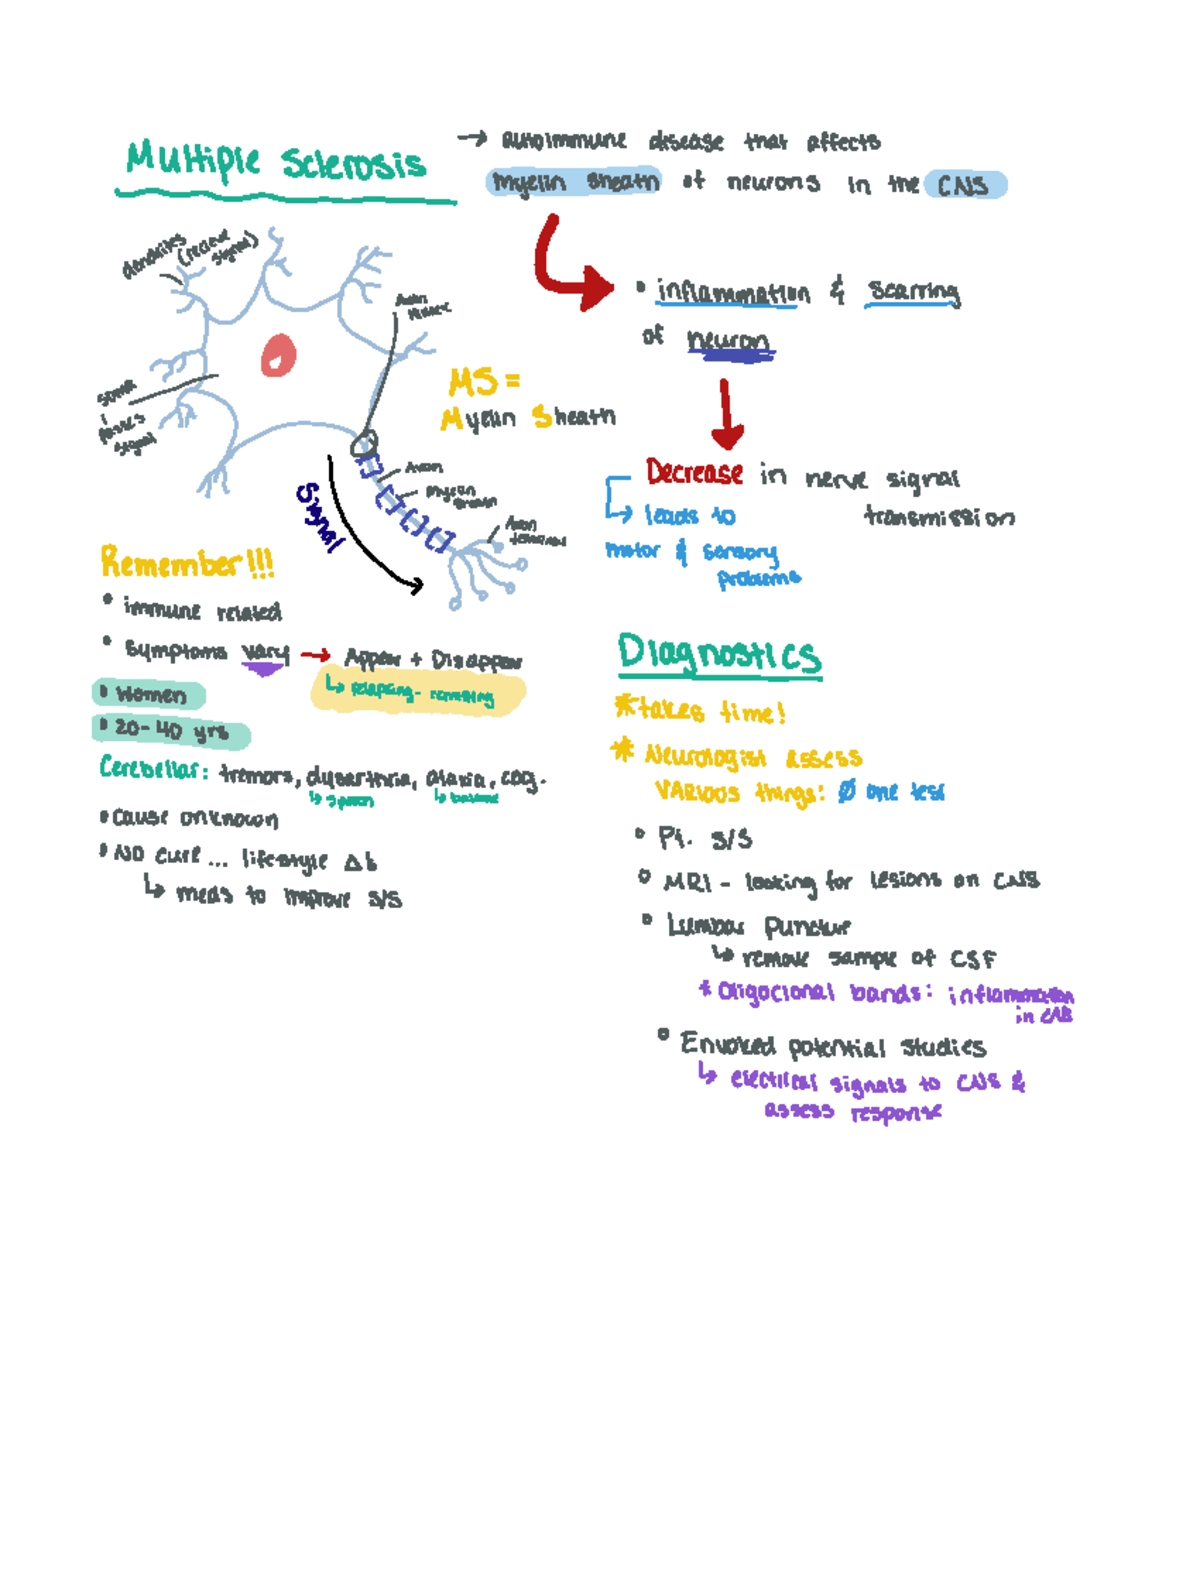 Multiple Sclerosis
→ autoimmune disease that affects
myelin sheath of neurons in the CNS
• inflammation & scarring
of neuron
Decrease in nerve signal
transmission
↳ leads to
motor & sensory
problems
dendrites
(recieve
signal)
Axon
soma
↓
passes
signal
MS =
Myelin Sheath
Axon
myelin
sheath
Axon
terminal
Signal
Remember!!!
• immune related
• Symptoms vary → Appear + Disappear
↳ relapsing-remitting
• Women
• 20-40 yrs
Cerebellar: tremors, dysarthria, ataxia, cog.
↳ speech
↳ balance
• cause unknown
• NO cure... lifestyle Δs
↳ meds to improve s/s
Diagnostics
*takes time!
* Neurologist assess
VARIOUS things: Ø one test
• Pt. s/s
• MRI - looking for lesions on CNS
• Lumbar Puncture
↳ remove sample of CSF
* Oligoclonal bands: inflammation
in CNS
• Envoked potential studies
↳ electrical signals to CNS &
assess response